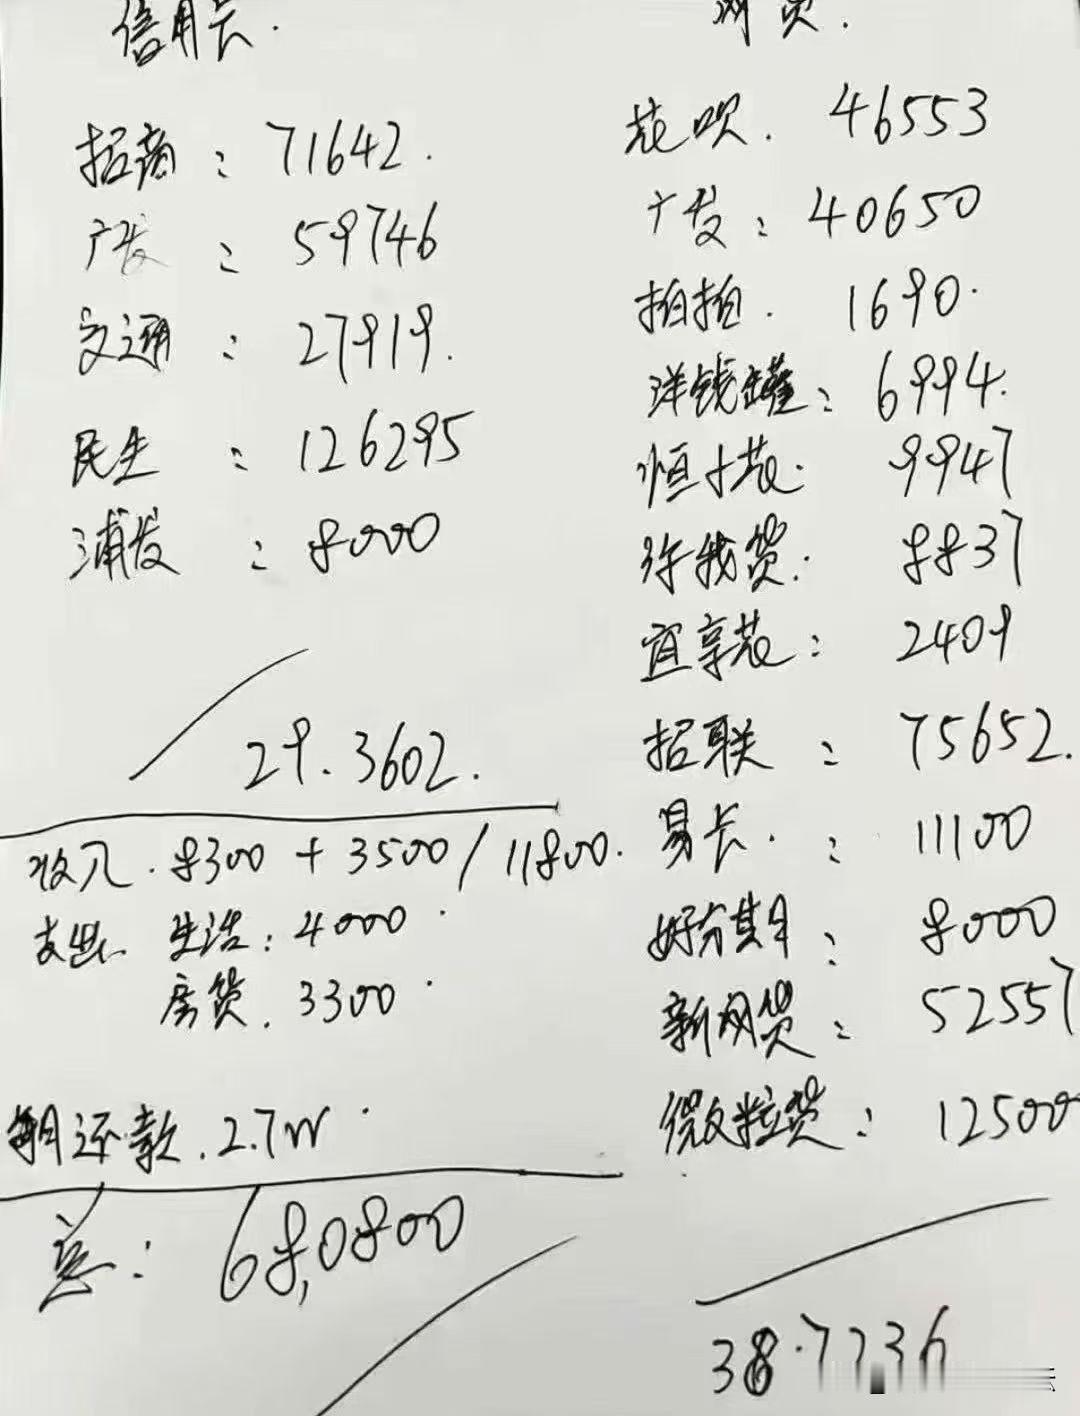 信用卡.
招商: 71642.
广发: 59746
交通: 27919.
民生: 126295
浦发: 8000
29.3602.
收入. 8300 + 3500 / 11800.
支出 生活: 4000.
房贷. 3300.
每月还款. 2.7W.
总: 68,0800
网贷.
花呗. 46553
广发: 40650
拍拍. 1690.
洋钱罐: 6994.
恒小花. 9947
你我贷. 8837
宜享花: 2409
招联: 75652.
易卡.: 11100
好分期: 8000
新网贷: 52557
微粒贷: 12500
38.7236